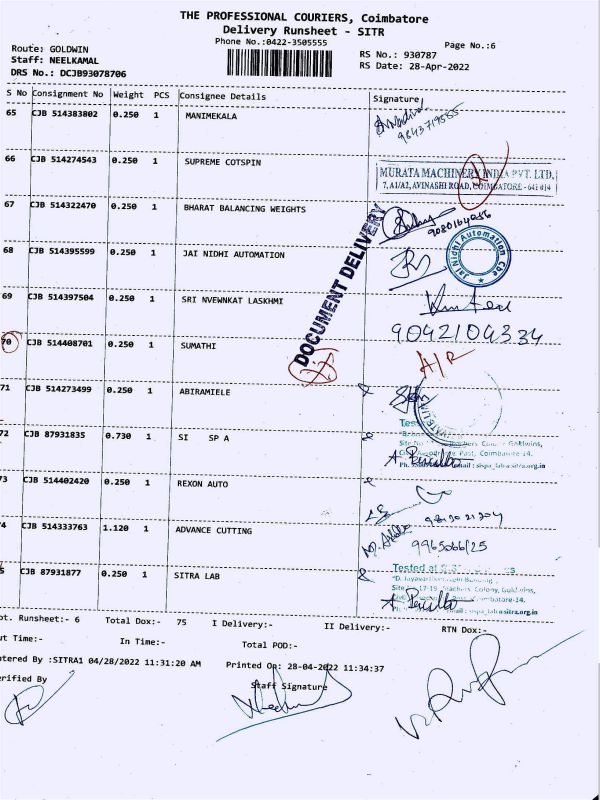 THE PROFESSIONAL COURIERS, Coimbatore
Delivery Runsheet - SITR
Phone No.:0422-3505555
Page No.:6
Route: GOLDWIN
Staff: NEELKAMAL
DRS No.: DCJB93078706
RS No.: 930787
RS Date: 28-Apr-2022
S No Consignment No Weight PCS Consignee Details Signature
65 CJB 514383802 0.250 1 MANIMEKALA
9843719555
66 CJB 514274543 0.250 1 SUPREME COTSPIN
MURATA MACHINERY INDIA PVT. LTD.,
7, A1/A2, AVINASHI ROAD, COIMBATORE - 641 014
67 CJB 514322470 0.250 1 BHARAT BALANCING WEIGHTS
DOCUMENT DELIVERY
68 CJB 514395599 0.250 1 JAI NIDHI AUTOMATION
Jai Nidhi Automation Cbe
69 CJB 514397504 0.250 1 SRI NVEWNKAT LASKHMI
9042104334
70 CJB 514408701 0.250 1 SUMATHI
A/R
71 CJB 514273499 0.250 1 ABIRAMIELE
72 CJB 87931835 0.730 1 SI SP A
73 CJB 514402420 0.250 1 REXON AUTO
74 CJB 514333763 1.120 1 ADVANCE CUTTING
9965066125
75 CJB 87931877 0.250 1 SITRA LAB
Tested at
ot. Runsheet:- 6 Total Dox:- 75 I Delivery:- II Delivery:- RTN Dox:-
ut Time:- In Time:- Total POD:-
ntered By :SITRA1 04/28/2022 11:31:20 AM Printed On: 28-04-2022 11:34:37
erified By Staff Signature